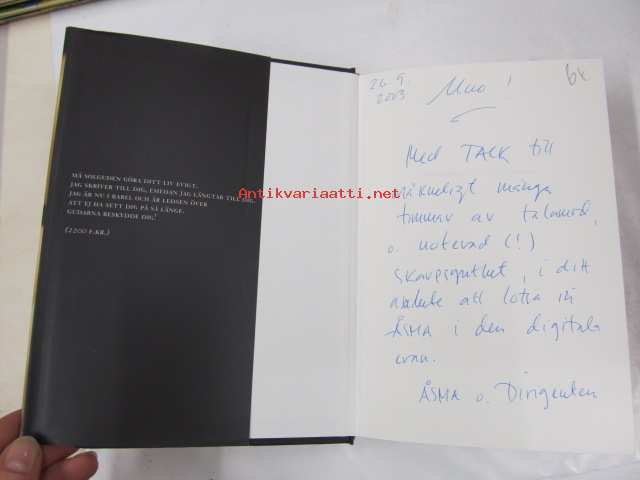 MÅ SOLGUDEN GÖRA DITT LIV EVIGT.
JAG SKRIVER TILL DIG, EMEDAN JAG LÄNGTAR TILL DIG.
JAG ÄR NU I BABEL OCH ÄR LEDSEN ÖVER
ATT EJ HA SETT DIG PÅ SÅ LÄNGE.
GUDARNA BESKYDDE DIG!
(2200 F.KR.)
Antikvariaatti.net
26.9.
2003
!
6x
Med TACK till
oräkneligt många
timmar av tålamod,
o. noterad (!)
skarpsynthet, i ditt
arbete att lotsa in
ÅSMA i den digitala
eran.
ÅSMA o. Dirigenten